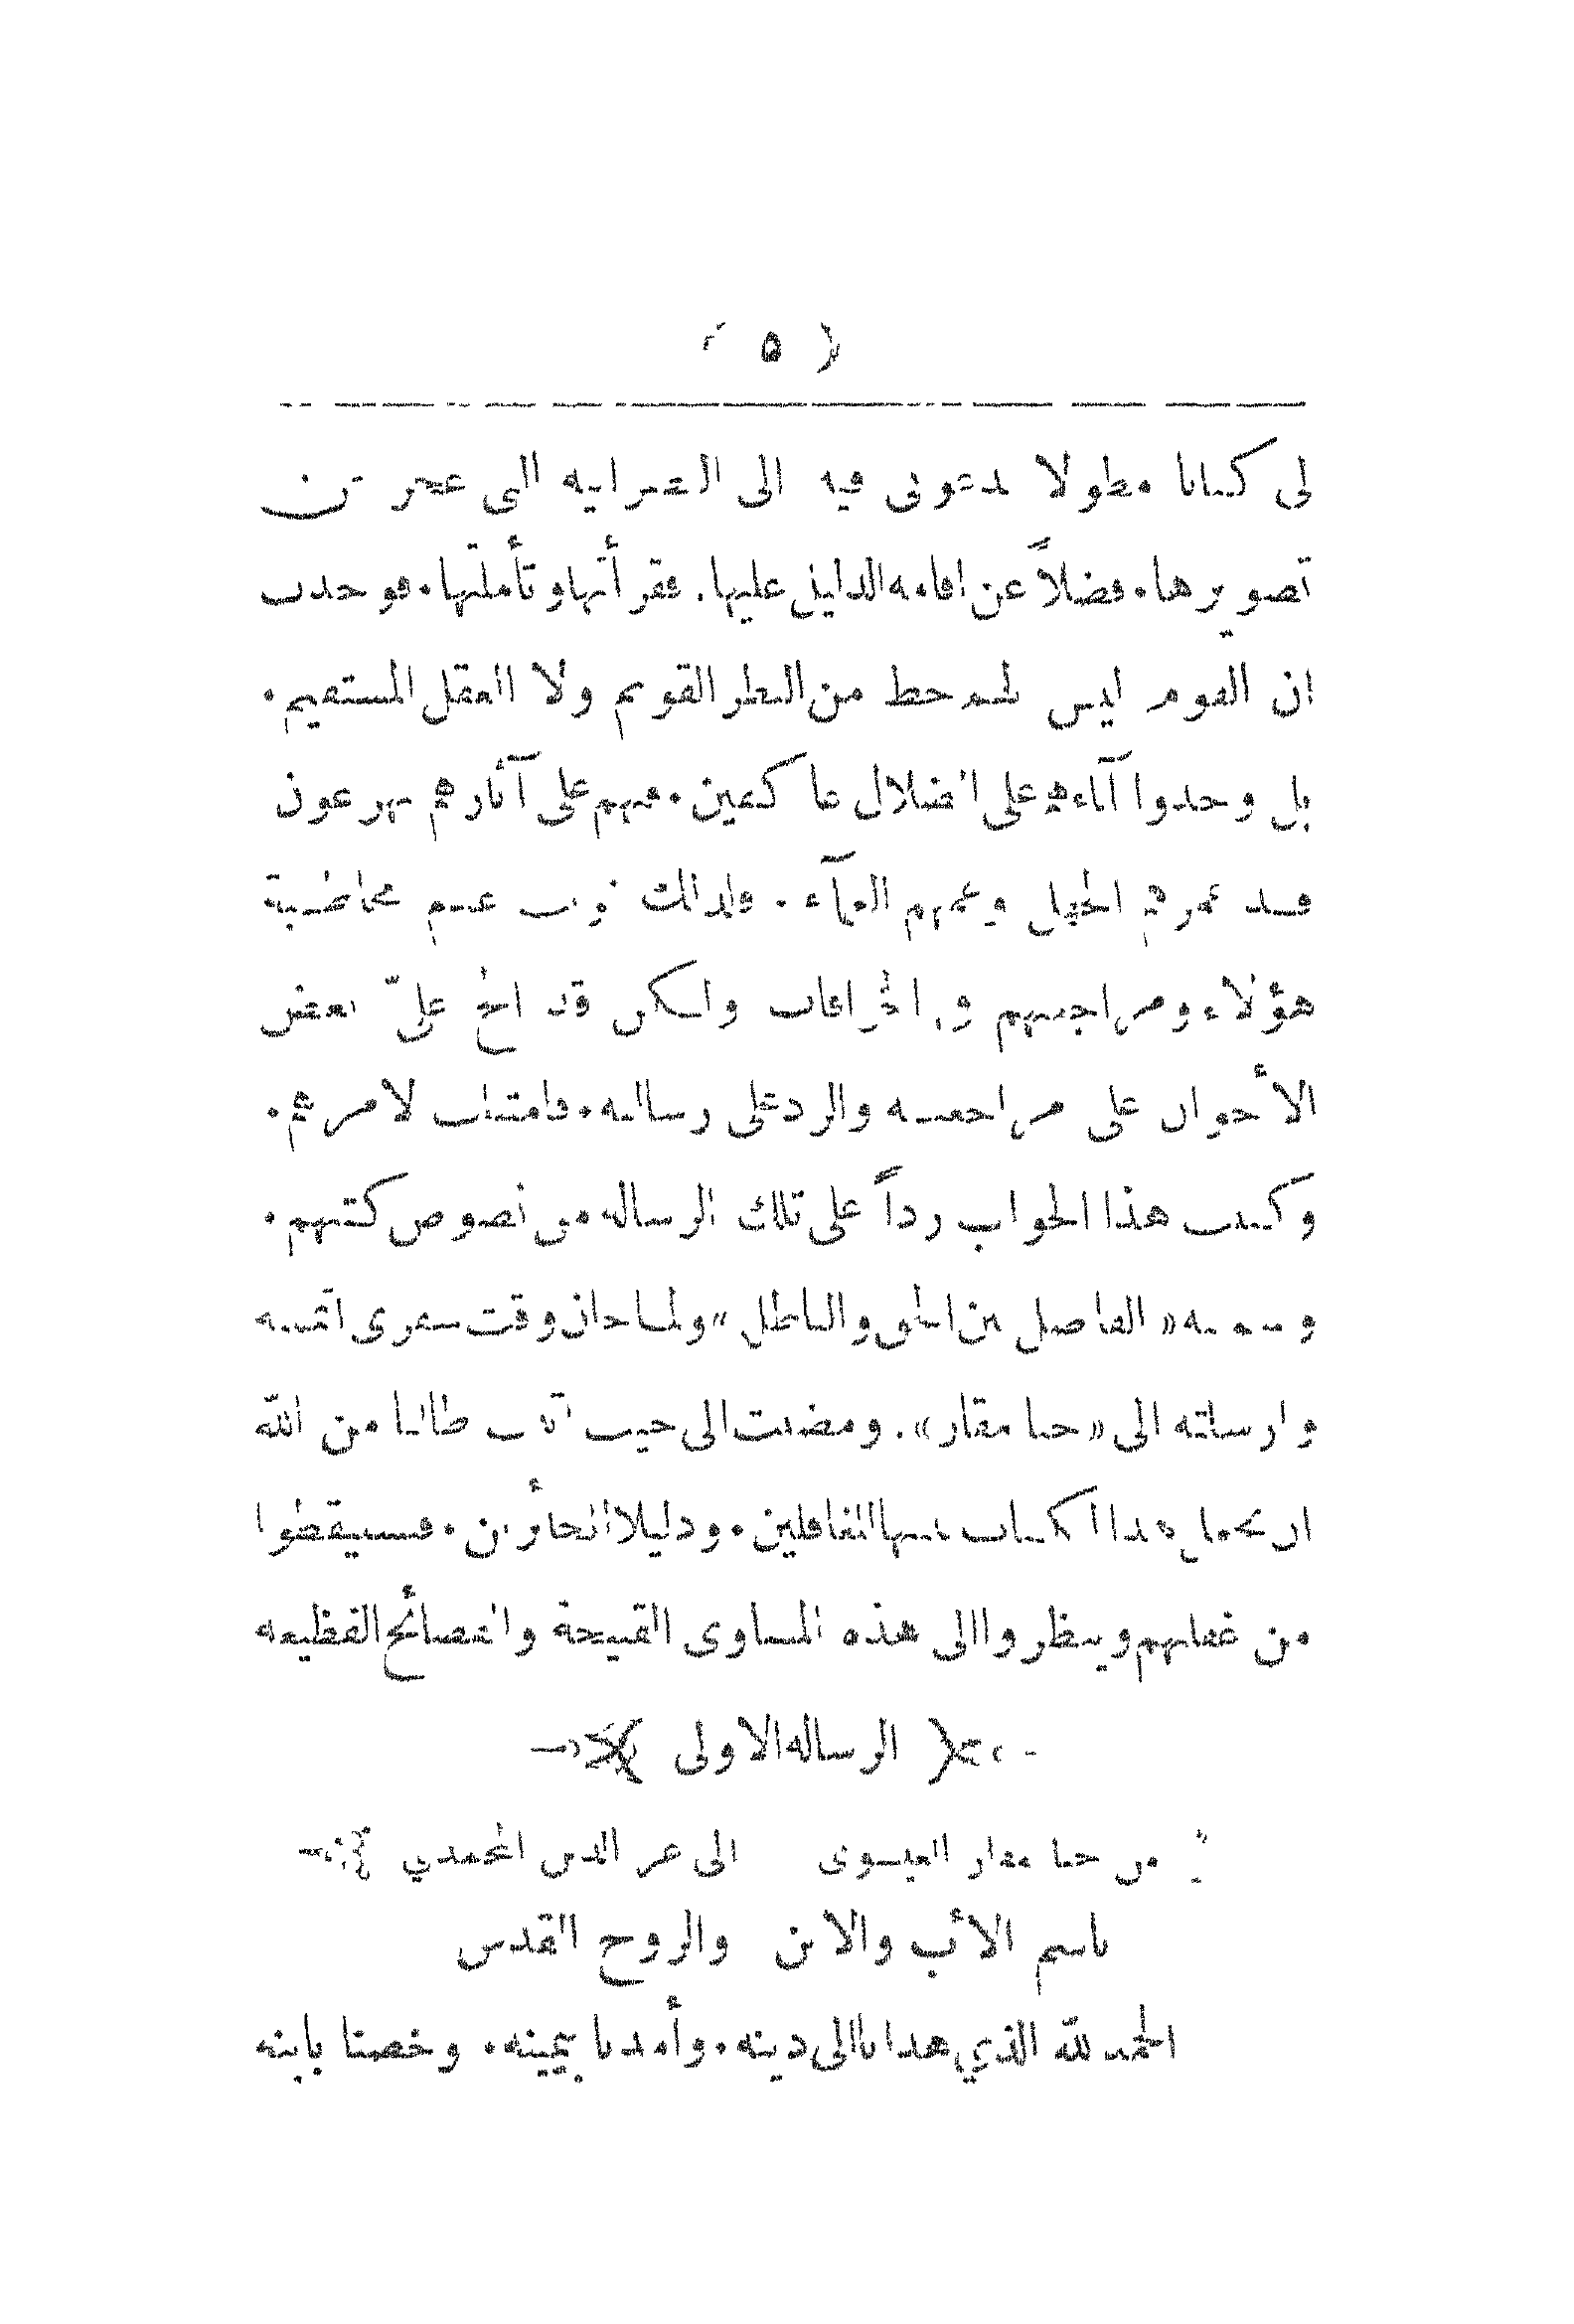 ( ٥ )
لي كتابا مطولا يدعوني فيه الى النصرانية التي عجز عن
تصويرها. فضلاً عن اقامة الدليل عليها. فقرأتها وتأملتها. فوجدت
ان القوم ليس لهم حظ من النظر القويم ولا العقل المستقيم.
بل وجدوا آباءهم على الضلال عاكفين. فهم على آثارهم يهرعون
قد غمرهم الجهل وعمهم العمآء. ولذلك وجب عدم مخاطبة
هؤلاء ومراجعتهم في الخرافات ولكن قد الح عليّ بعض
الأخوان على مراجعته والرد على رسالته. فامتثلت لامرهم.
وكتبت هذا الجواب رداً على تلك الرسالة من نصوص كتبهم.
وسميته «الفاصل بين الحق والباطل» ولما حان وقت سفري اتممته
وارسلته الى «حنا مقار». ومضيت الى حيث طالبا من الله
ان يجعل هذا الكتاب تنبيها للغافلين. ودليلا للحائرين. فيستيقظوا
من غفلتهم وينظروا الى هذه المساوي القبيحة والفضائح الفظيعة
الرسالة الاولى
من حنا مقار العيسوي الى عز الدين المحمدي
باسم الأب والابن والروح القدس
الحمد لله الذي هدانا الى دينه. وأمدنا بيمينه. وخصنا بابنه